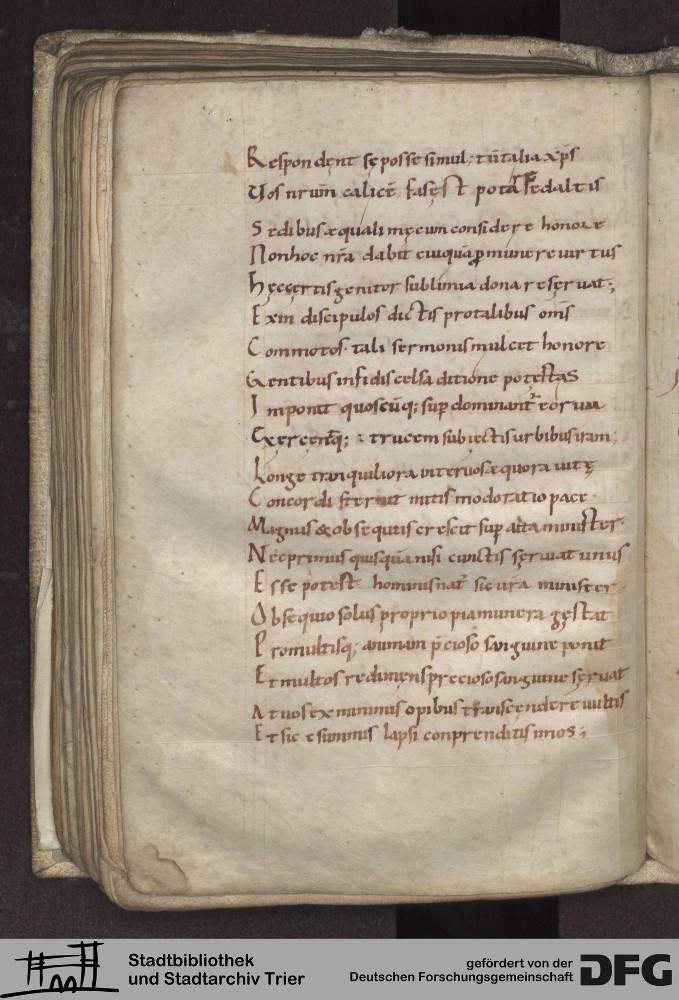 Respondent se posse simul; tū talia xp̄s
Uos nrūm calicē fas est potare daltis
Sedibus æquali męcum considere honore
Non hoc nrā dabit cuiquā ꝓ munere uirtus
hęc certis genitor sublimia dona reseruat;
Exin discipulos dictis pro talibus om̄s
Commotos· tali sermonis mulcet honore
Gentibus infidis celsa ditione potestas
Inponit quoscūq; suꝑ dominant̄ eorum
Exercentq; & trucem subiectis urbibus iram;
Longe tranquiliora inter uos æquora uitę
Concordi sternit mitis modoratio pace·
Magnus & obsequiis crescit suꝑ alta minister·
Nec primus quisquā nisi cunctis seruiat unus
Esse potest hominis nat̄ sic urā minister
Obsequio solus proprio pia munera gestat
Pro multisq; animam p̄cioso sanguine ponit
Et multos redimens precioso sanguine seruat
At uos ex minimis opibus transcendere uultis
Et sic e summis lapsi conprenditis imos;
Stadtbibliothek
und Stadtarchiv Trier
gefördert von der
Deutschen Forschungsgemeinschaft
DFG